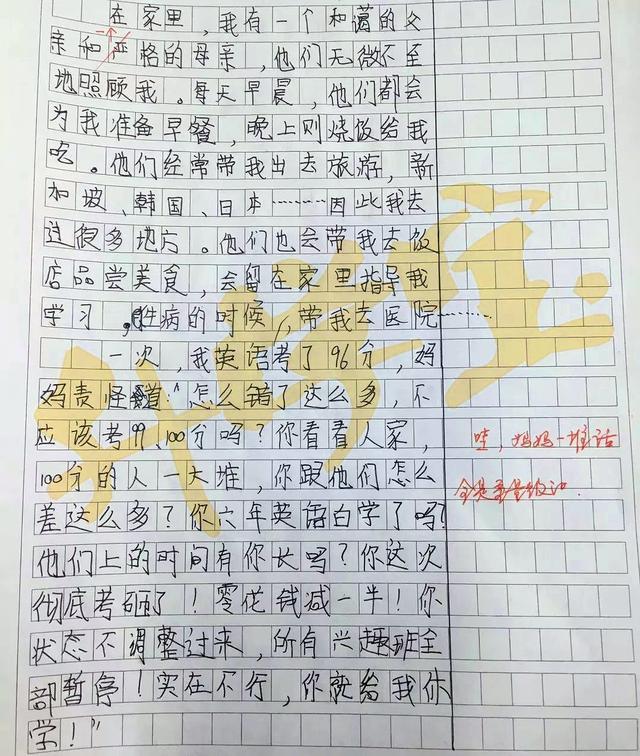 在家里，我有一个和蔼的父
亲和严格的母亲，他们无微不至
地照顾我。每天早晨，他们都会
为我准备早餐，晚上则烧饭给我
吃。他们经常带我出去旅游，新
加坡、韩国、日本………因此我去
过很多地方。他们也会带我去饭
店品尝美食，会留在家里指导我
学习，生病的时候，带我去医院………
一次，我英语考了96分，妈
妈责怪道“怎么错了这么多，不
应该考99、100分吗？你看看人家，
哇，妈妈一堆话
100分的人一大堆，你跟他们怎么
全是
差这么多？你六年英语白学了吗？
他们上的时间有你长吗？你这次
彻底考砸了！零花钱减一半！你
状态不调整过来，所有兴趣班全
部暂停！实在不行，你就给我休
学！”
升学宝